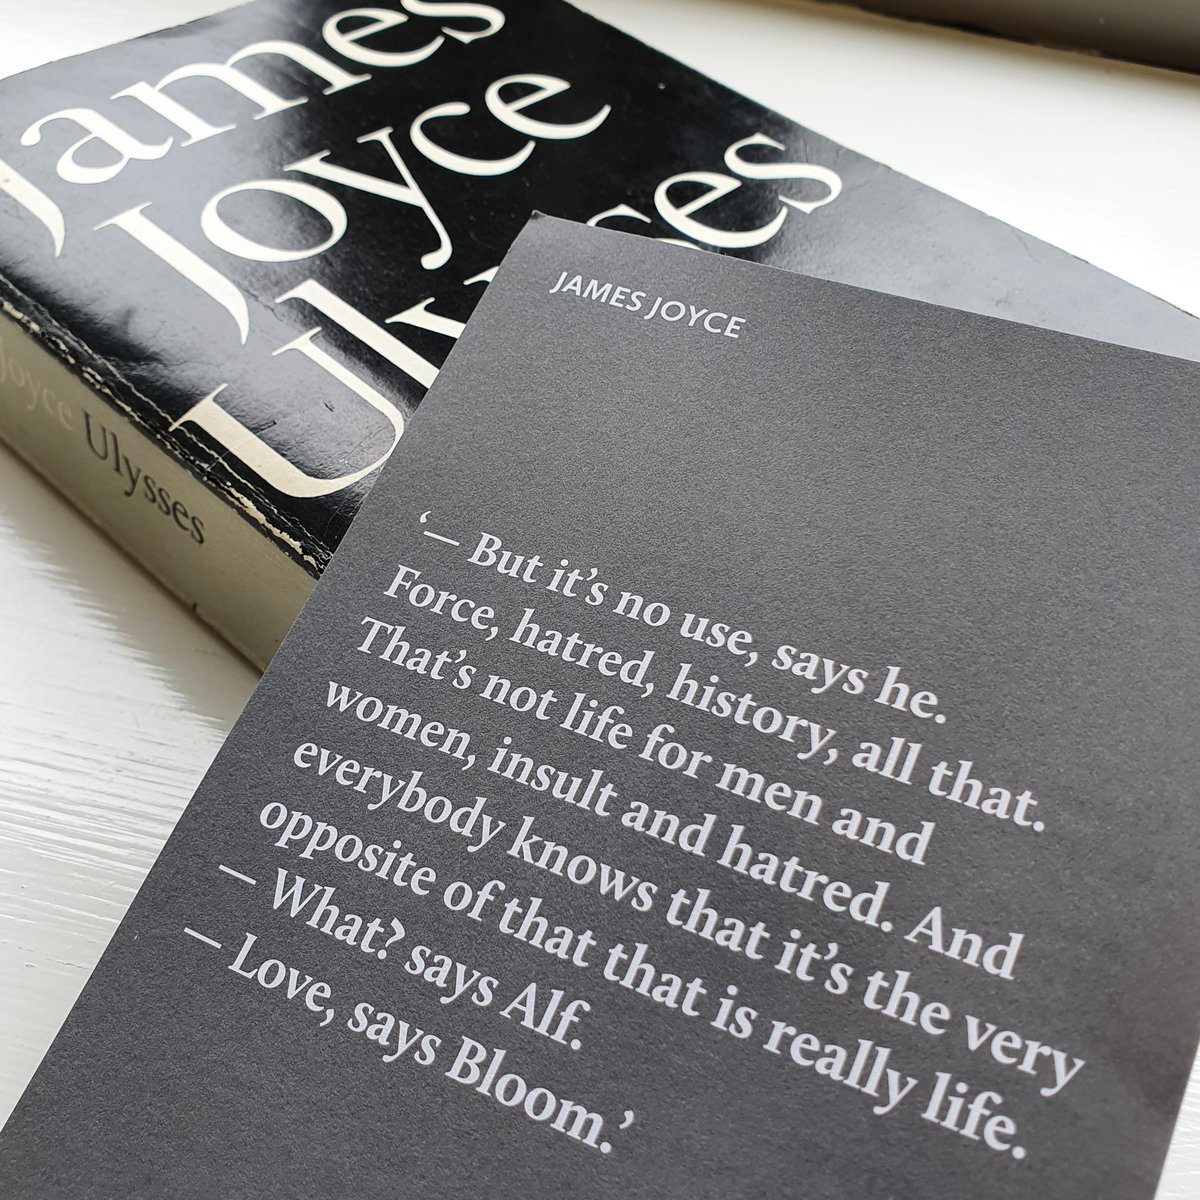 James
Joyce
Ulysses
Joyce Ulysses
JAMES JOYCE
‘— But it’s no use, says he.
Force, hatred, history, all that.
That’s not life for men and
women, insult and hatred. And
everybody knows that it’s the very
opposite of that that is really life.
— What? says Alf.
— Love, says Bloom.’